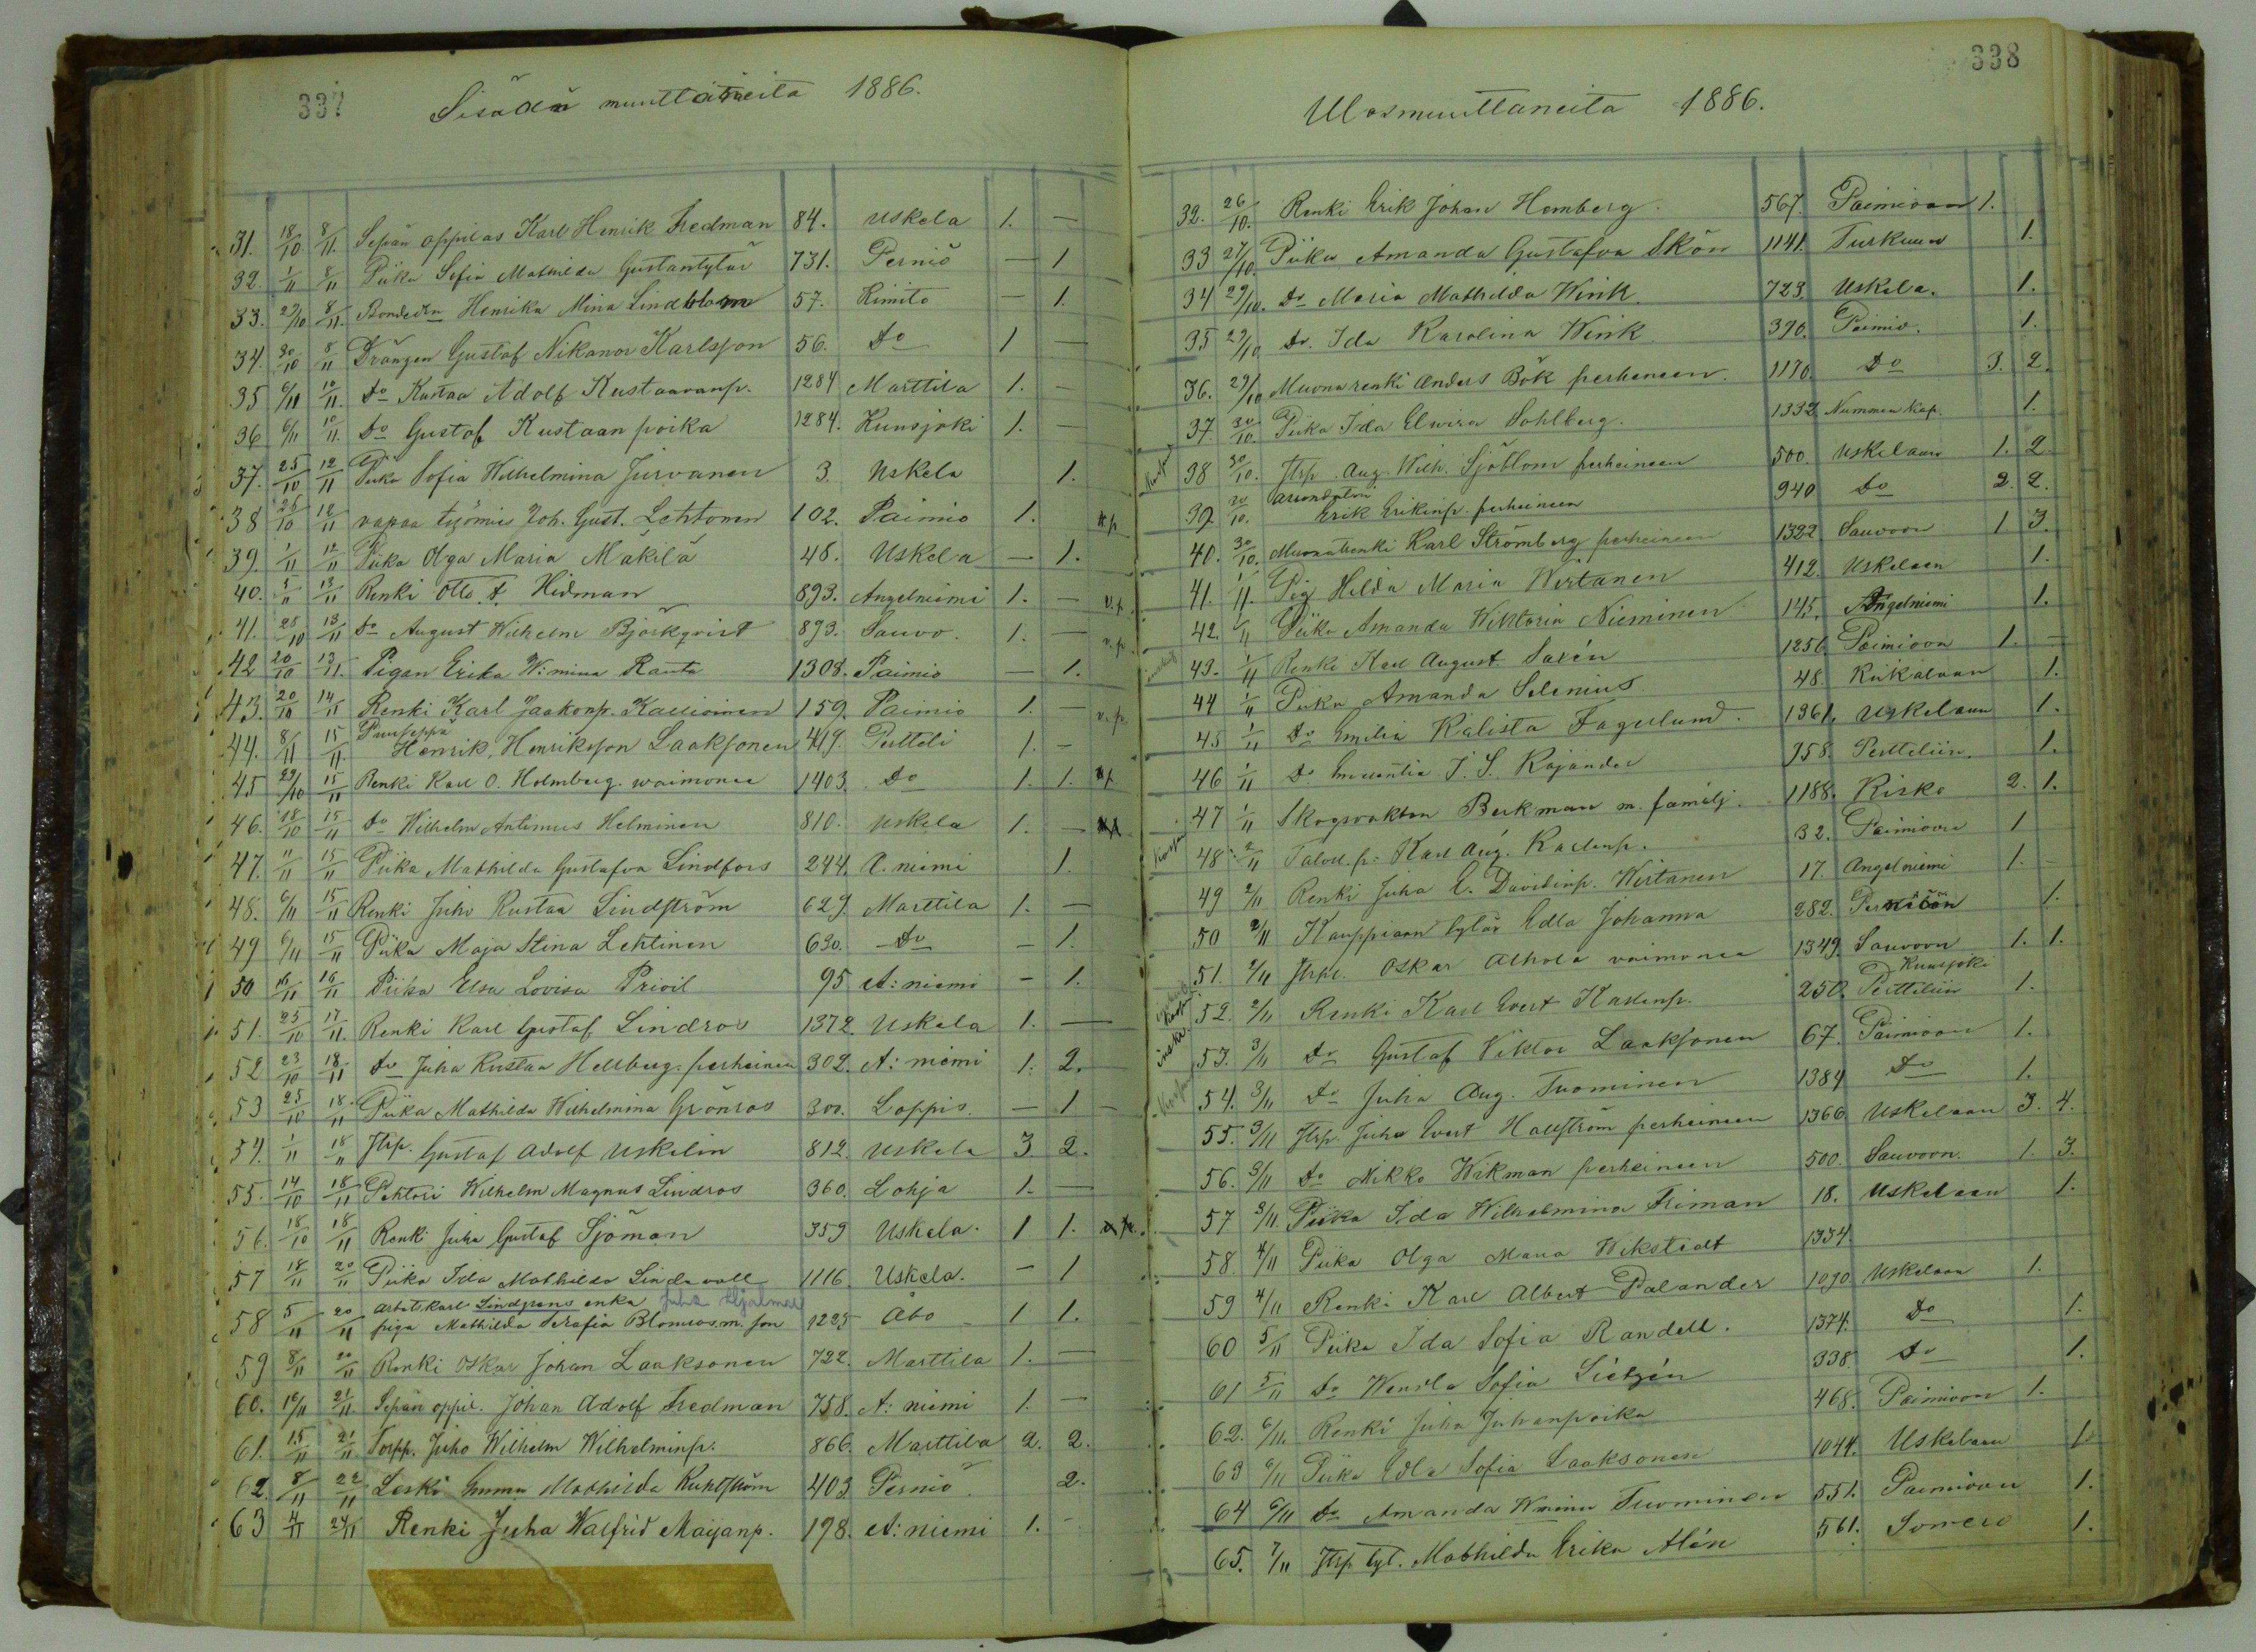 337
Sisään muuttaneita 1886.
31. 18/10 8/11. Sepän oppilas Karl Henrik Fredman 84. Uskela 1. —
32. 1/11 8/11 Piika Sofia Mathilda Gustantytär 731. Perniö — 1
33. 29/10 8/11. Bondedtn Henrika Mina Lindblom 57. Kimito — 1.
34. 30/10 8/11 Drängen Gustaf Nikanor Karlsson 56. Do 1 —
35 6/11 10/11. Do Kustaa Adolf Kustaavanp. 1284 Marttila 1. —
36 6/11 10/11. Do Gustaf Kustaan poika 1284. Kuusjoki 1. —
37. 25/10 12/11 Piika Sofia Wilhelmina Jurvanen 3. Uskela 1.
38 25/10 12/11 vapaa työmies Joh. Gust. Lehtonen 102. Paimio 1.
39. 1/11 12/11 Piika Olga Maria Mäkilä 48. Uskela — 1.
40. 5/11 13/11 Renki Otto A. Hidman 893. Angelniemi 1. —
41. 25/10 13/11 Do August Wilhelm Björkqvist 893. Sauvo. 1. —
42 20/10 13/11. Pigan Erika W:mina Ranta 1308. Paimio — 1.
43. 20/10 14/11 Renki Karl Jaakonp. Kallioinen 159. Paimio 1. —
44. 8/11 15/11. Puuseppä Henrik Henriksson Laaksonen 419. Pertteli 1. —
45 29/10 15/11 Renki Karl O. Holmberg. waimonee 1403. Do 1. 1.
46. 18/10 15/11 Do Wilhelm Antinus Helminen 810. Uskela 1. —
47. 11/11 15/11 Piika Mathilda Gustafva Lindfors 244. A. niemi 1.
48. 6/11 15/11 Renki Juho Kustaa Lindström 629. Marttila 1. —
49 6/11 15/11 Piika Maja Stina Lehtinen 630. Do — 1.
50 16/11 16/11 Piika Elsa Lovisa Prioil 95 A: niemi — 1.
51. 25/10 17/11. Renki Karl Gustaf Lindros 1372. Uskela 1. —
52 23/10 18/11 Do Juha Kustaa Hellberg. perheinen 302. A: niemi 1. 2.
53 25/10 18/11 Piika Mathilda Wilhelmina Grönros 300. Loppis. — 1 —
54. 1/11 18/11 Jtrp. Gustaf Adolf Uskelin 812. Uskela 3 2.
55. 14/10 18/11 Pehtori Wilhelm Magnus Lindros 360. Lohja 1. —
56. 18/10 18/11 Renki Juha Gustaf Sjöman 359 Uskela. 1 1.
57 18/11 20/11 Piika Ida Mathilda Lindevall 1116. Uskela. — 1
58 5/11 20/11 arbetskarl Lindgrens enka Juha Hjalmar
piga Mathilda Serafia Blomros m. son 1225 Åbo 1 1.
59 8/11 20/11 Renki Oskar Johan Laaksonen 722. Marttila 1. —
60. 16/11 21/11. Sepän oppil. Johan Adolf Fredman 758. A: niemi 1. —
61. 15/11 21/11. Torpp. Juho Wilhelm Wilhelminp. 866. Marttila 2. 2.
62. 8/11 22/11 Leski Emma Mathilda Kuhlström 403 Perniö. 2.
63 4/11 24/11 Renki Juha Walfrid Maijanp. 198. A: niemi 1. —
338
Ulosmuuttaneita 1886.
32. 26/10. Renki Erik Johan Homberg. 567. Paimioon 1.
33 27/10. Piika Amanda Gustafva Skön 1141. Turkuun 1.
34 29/10. Do Maria Mathilda Wink. 723. Uskela. 1.
35 29/10 Do. Ida Karolina Wink 390. Paimio. 1.
36. 29/10 Muonarenki Anders Bök perheneen. 1170. Do 3. 2.
37. 30/10. Piika Ida Elvira Sohlberg. 1332 Nummen kap. 1.
38 30/10. Jtrp. Aug. Wilh. Sjöblom perheineen 500. Uskelaan 1. 2.
39. 30/10. Erik Erikinp. perheineen 940 Do 2. 2.
40. 30/10. Muonarenki Karl Strömberg perheineen 1322 Sauvoon 1 3.
41. 1/11. Pig Hilda Maria Wirtanen 412. Uskelaan 1.
42. 1/11 Piika Amanda Wiktoria Nieminen 145. Angelniemi 1.
43. 1/11 Renki Karl August Saxén 1256. Paimioon 1. —
44 1/11 Piika Amanda Selenius 48. Kiikalaan 1.
45 1/11 Do Emilia Kalista Fagerlund. 1361. Uskelaan 1.
46 1/11 Do J. S. Rajander 958. Perttelin. 1.
47 1/11 Skogsvaktan Berkman m. familj. 1188. Kisko 2. 1.
48 2/11 Taloll.p. Karl Aug. Karlenp. 32. Paimioon 1
49 2/11 Renki Juha E. Davidinp. Wirtanen 17. Angelniemi 1. —
50 2/11 Kauppiaan tytär Edla Johanna 282. Perniöön 1.
51. 2/11 Jtrpl. Oskar Alhola vaimonee 1349. Sauvoon 1. 1.
52. 2/11 Renki Karl Evert Karlenp. 250. Kuusjoki Perttelin 1.
53. 3/11 Do Gustaf Viktor Laaksonen 67. Paimioon 1.
54. 3/11 Do Juha Aug. Tuominen 1384 Do 1.
55. 3/11 Jtrp. Juho Evert Hallström perheineen 1366 Uskelaan 3. 4.
56. 3/11 Do Nikko Wikman perheineen 500. Sauvoon. 1. 3.
57 3/11. Piika Ida Wilhelmina Friman 18. Uskelaan 1.
58. 4/11 Piika Olga Maria Wekstedt 1334.
59 4/11 Renki Karl Albert Palander 1090. Uskelaan 1.
60 5/11 Piika Ida Sofia Randell. 1374. Do 1.
61 5/11 Do Wendla Sofia Sietzén 338. Do 1.
62. 6/11. Renki Juha Juhanpoika 468. Paimioon 1.
63 6/11 Piika Edla Sofia Laaksonen 1044. Uskelaan 1.
64 6/11 Do Amanda Wmina Tuominen 551. Paimioon 1.
65. 7/11 Jtrp. tyt. Mathilda Erika Alén 561. Somero 1.